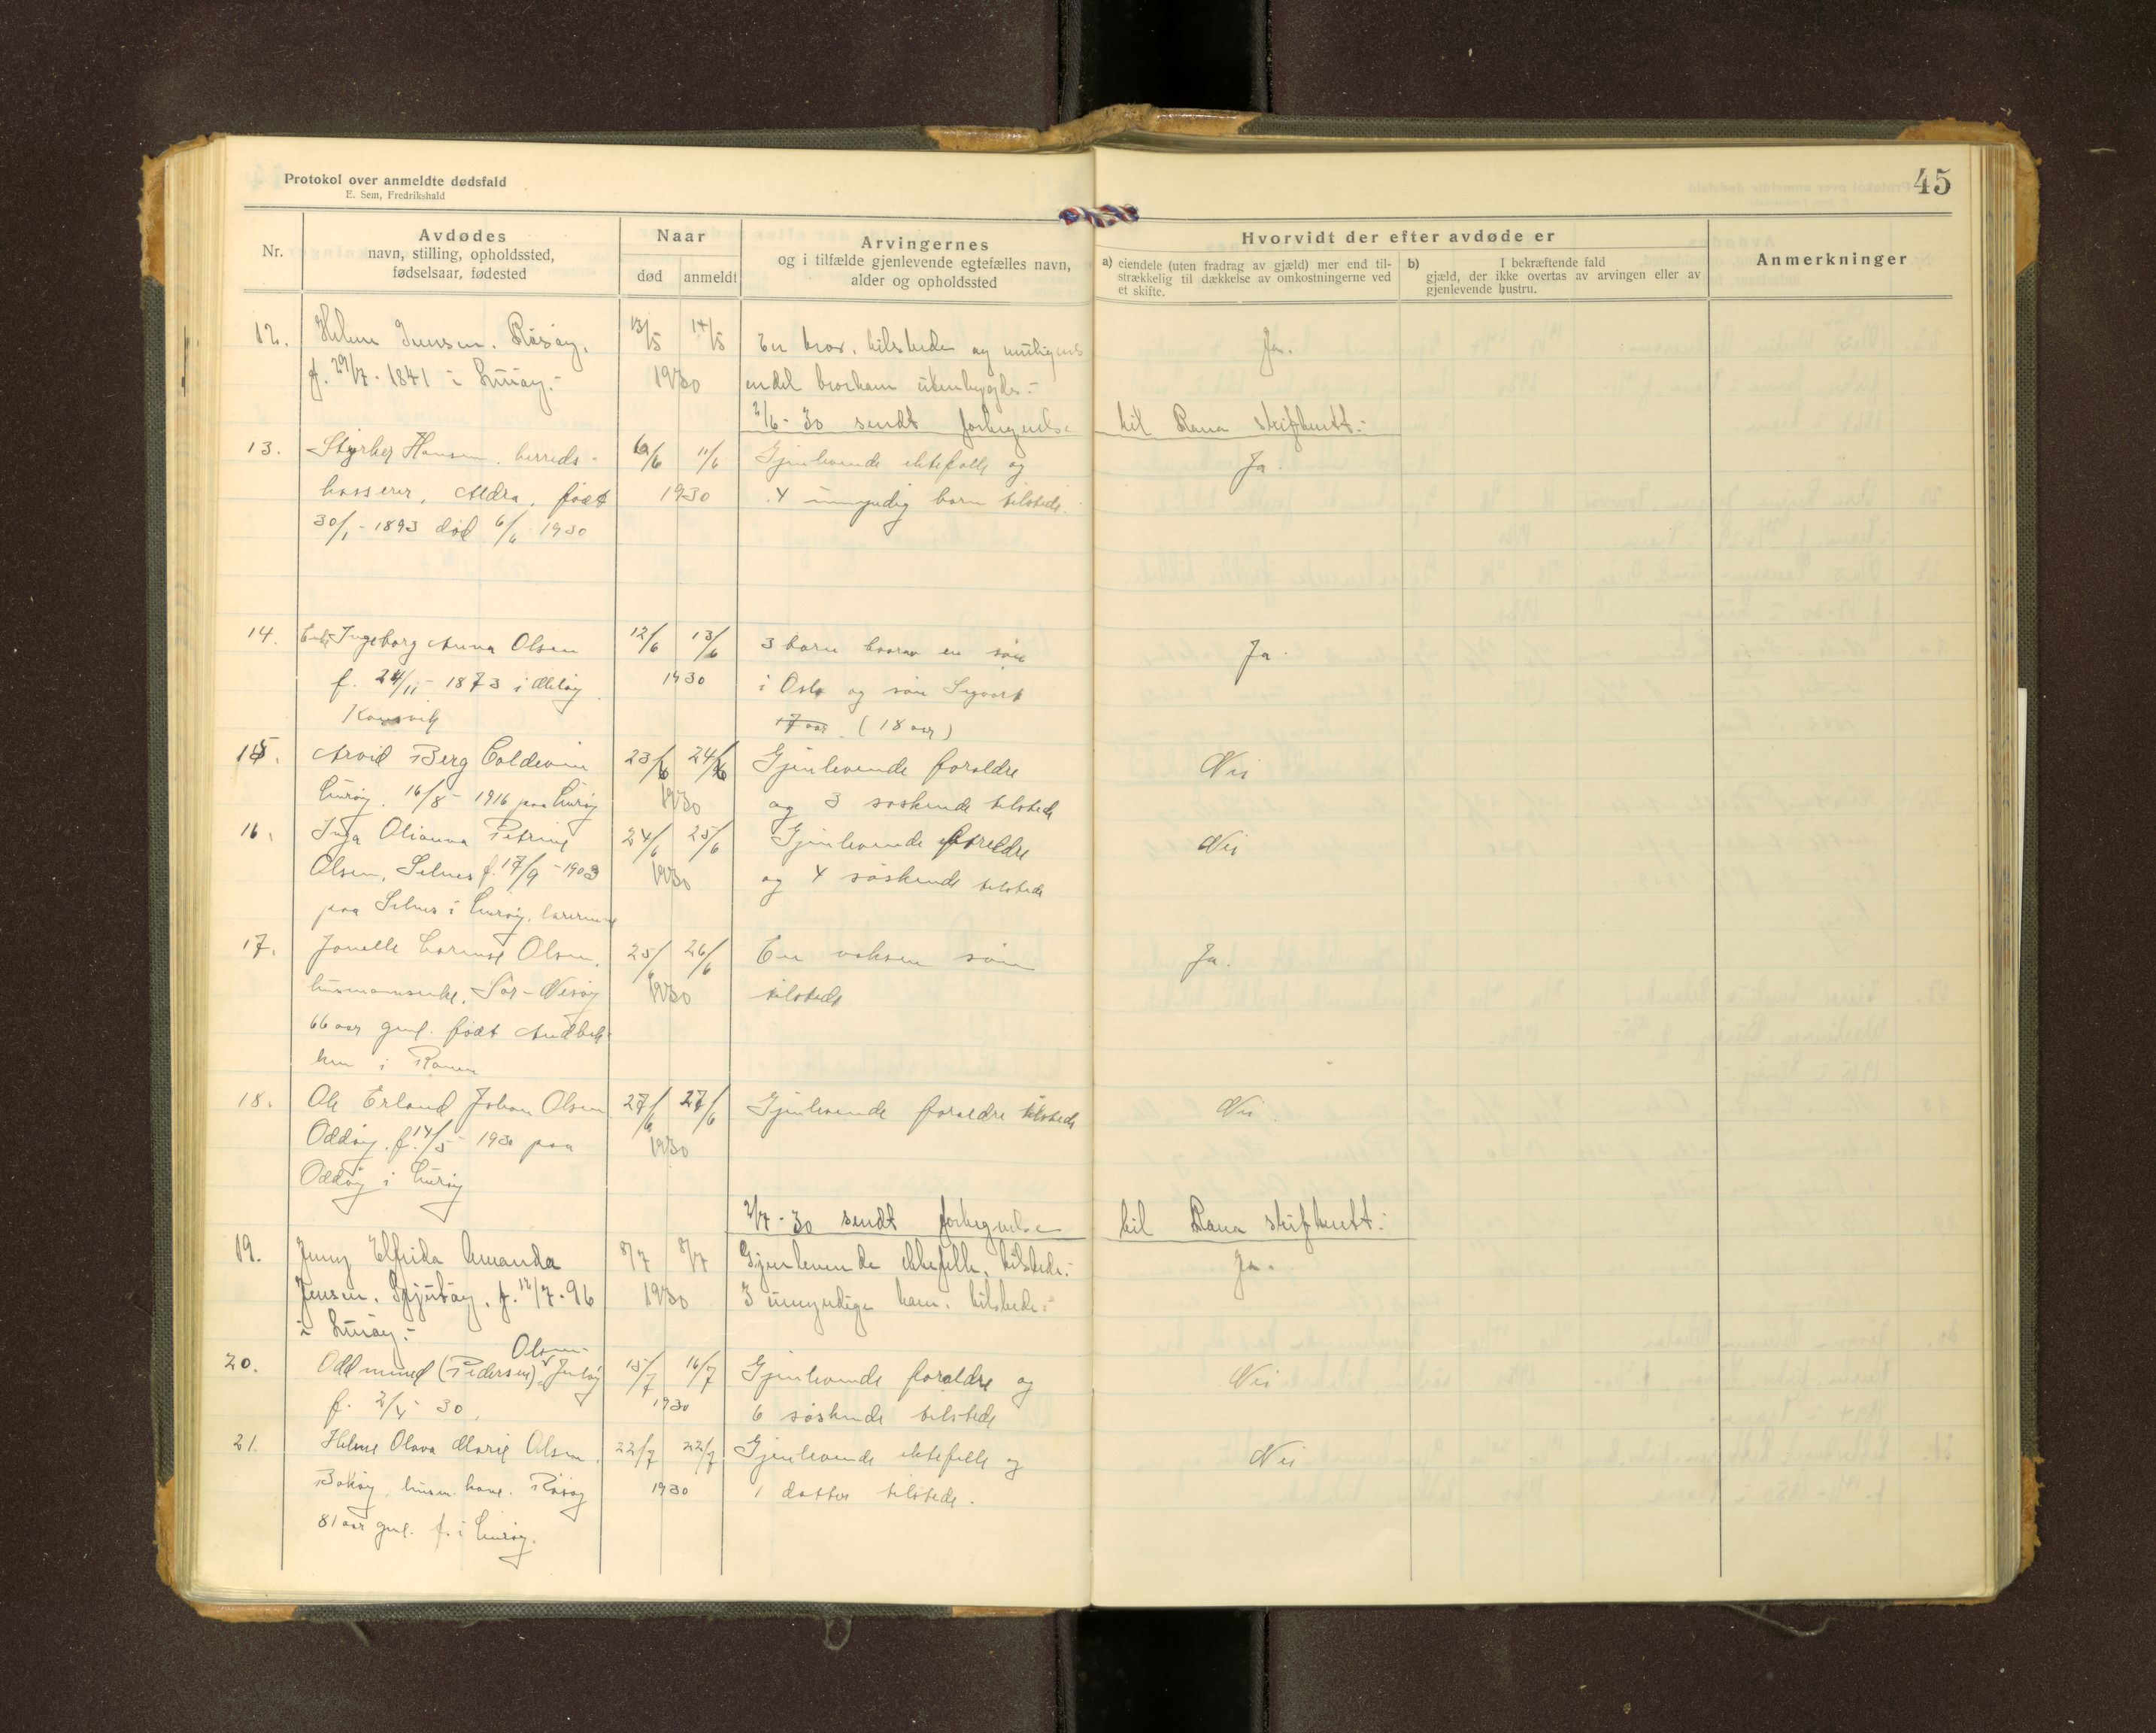 Protokol over anmeldte dødsfald
E. Sem, Fredrikshald
45
Nr.
Avdødes
navn, stilling, opholdssted,
fødselsaar, fødested
Naar
død anmeldt
Arvingernes
og i tilfælde gjenlevende egtefælles navn,
alder og opholdssted
Hvorvidt der efter avdøde er
a) eiendele (uten fradrag av gjæld) mer end til-
strækkelig til dækkelse av omkostningerne ved
et skifte.
b) I bekræftende fald
gjæld, der ikke overtas av arvingen eller av
gjenlevende hustru.
Anmerkninger
12. Helene Jensen, Risøy, 13/5 14/5 En bror, tilstede og muligens Ja.
f. 29/7 - 1841 i Lurøy.- 1930 endel brorbarn utenbygds.-
2/6 - 30 sendt fortegnelse til Rana skifterett.-
13. Styrker Hansen, herreds- 6/6 11/6 Gjenlevende ektefelle og Ja.
kasserer, Aldra, født 1930 4 umyndig barn tilstede.
30/1 - 1893 død 6/6 1930
14. Enke Ingeborg Anna Olsen 12/6 13/6 3 barn hvorav en søn Ja.
f. 24/11 - 1873 i Meløy 1930 i Oslo og søn Sigvart
Konsvik 17 aar. (18 aar)
15. Arvid Berg Coldevin 23/6 24/6 Gjenlevende foreldre Nei
Lurøy. 16/8 - 1916 paa Lurøy 1930 og 3 søskende tilstede
16. Inga Olianna Petrine 24/6 25/6 Gjenlevende foreldre Nei
Olsen, Selnes f. 17/9 - 1903 1930 og 4 søskende tilstede
paa Selnes i Lurøy, lærerinne
17. Jonelle Lornse Olsen, 25/6 26/6 En voksen søn Ja.
husmannsenke, Sør-Nesøy 1930 tilstede
66 aar gml. født Andbek-
ken i Ranen
18. Ole Erland Johan Olsen 27/6 27/6 Gjenlevende foreldre tilstede Nei
Oddøy, f. 14/5 - 1930 paa 1930
Oddøy i Lurøy
2/7 - 30 sendt fortegnelse til Rana skifterett.-
19. Jenny Elfrida Amanda 8/7 8/7 Gjenlevende ektefelle, tilstede.- Ja.
Jensen, f. 12/7 - 96 1930 3 umyndige barn, tilstede.-
i Lurøy.-
Olsen
20. Oddmund (Pedersen) 15/7 16/7 Gjenlevende foreldre og Nei
f. 2/4 - 30, 1930 6 søskende tilstede
21. Helene Olava Marie Olsen, 22/7 22/7 Gjenlevende ektefelle og Nei
husm. kone. Risøy 1930 1 datter tilstede.
81 aar gml. f. i Lurøy.